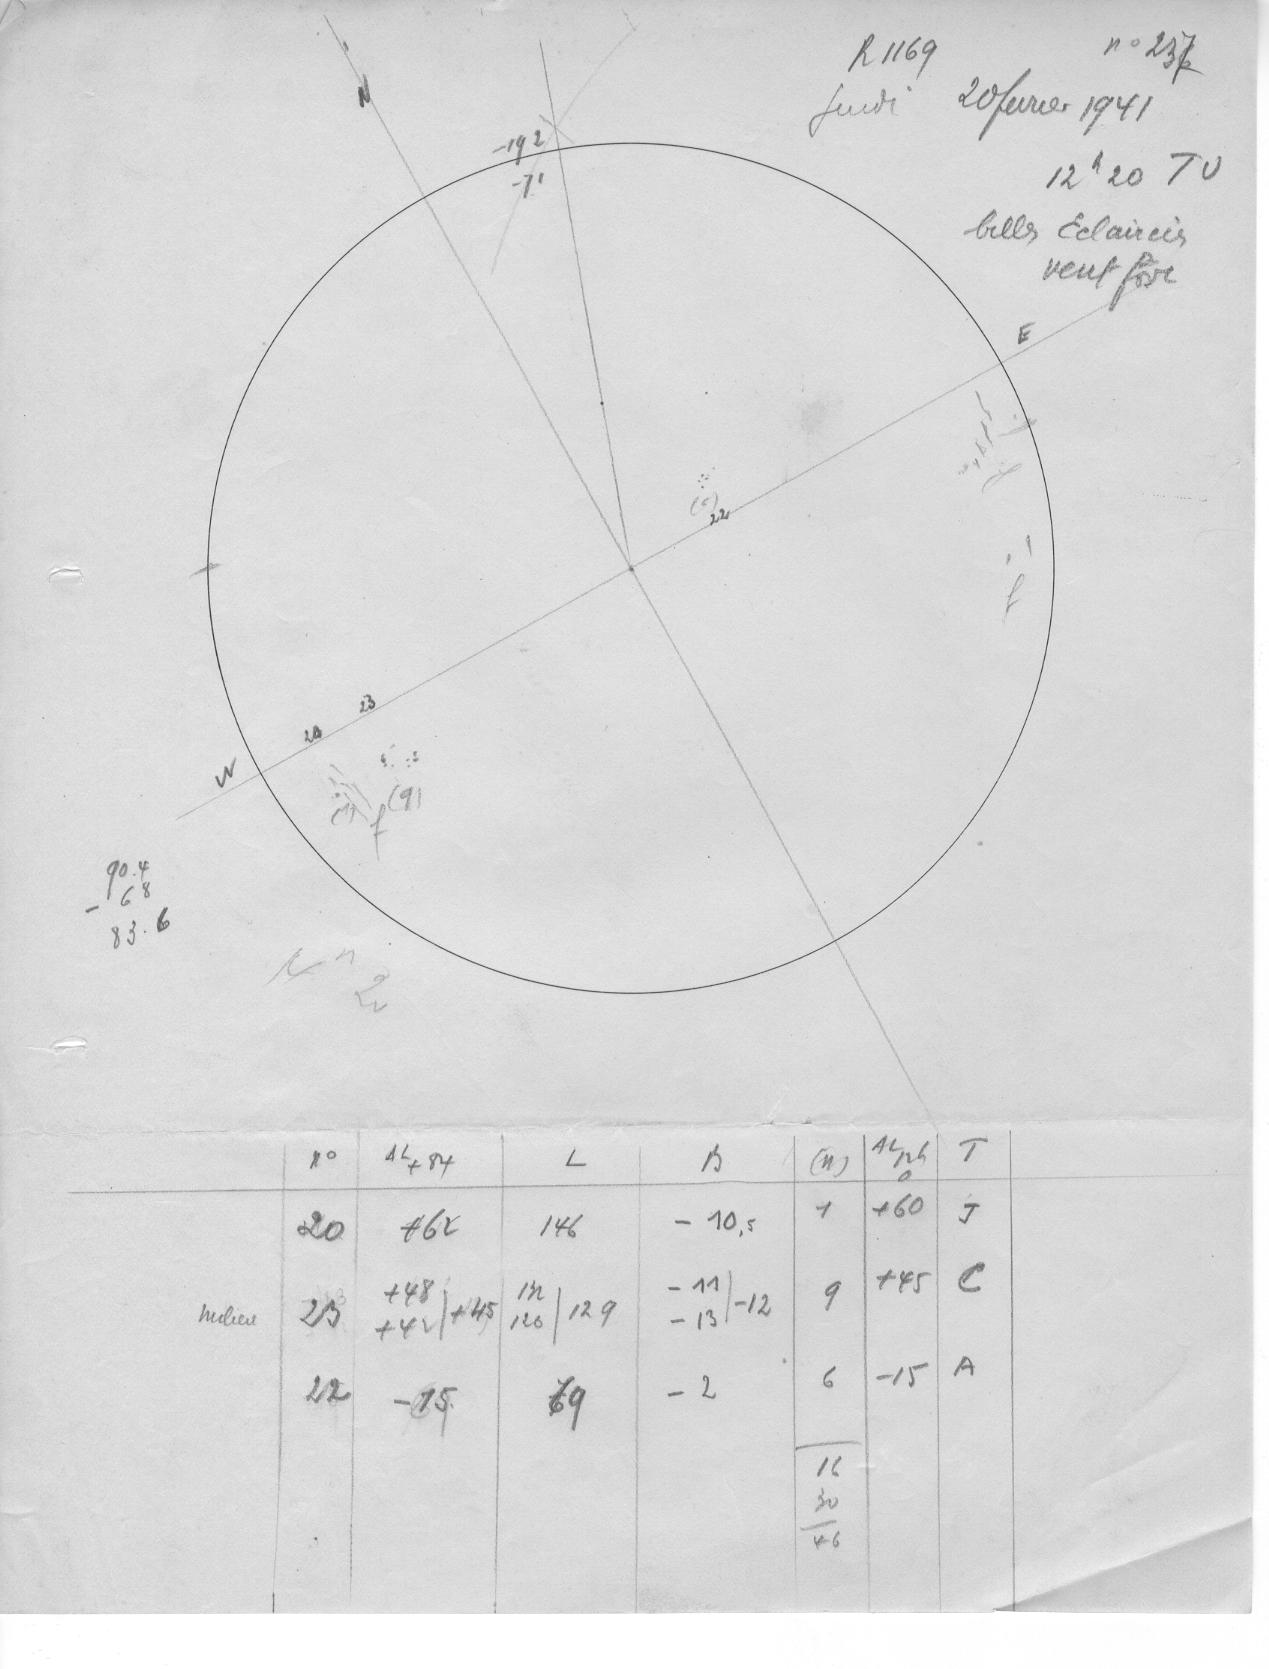 R 1169 n° 237
Jeudi 20 fevrier 1941
12h 20 TU
belles Eclaircies
vent fort
N
-19 2
-7°
E
(6)
22
f
23
20
W
(9)
(1)
f
90.4
- 6 8
83.6
n° ΔL +84 L B (n) T
20 +62 146 -10,5 1 +60 J
milieu 23 +48 +42 +45 132 120 129 -11 -13 -12 9 +45 C
22 -15 69 -2 6 -15 A
16
30
46